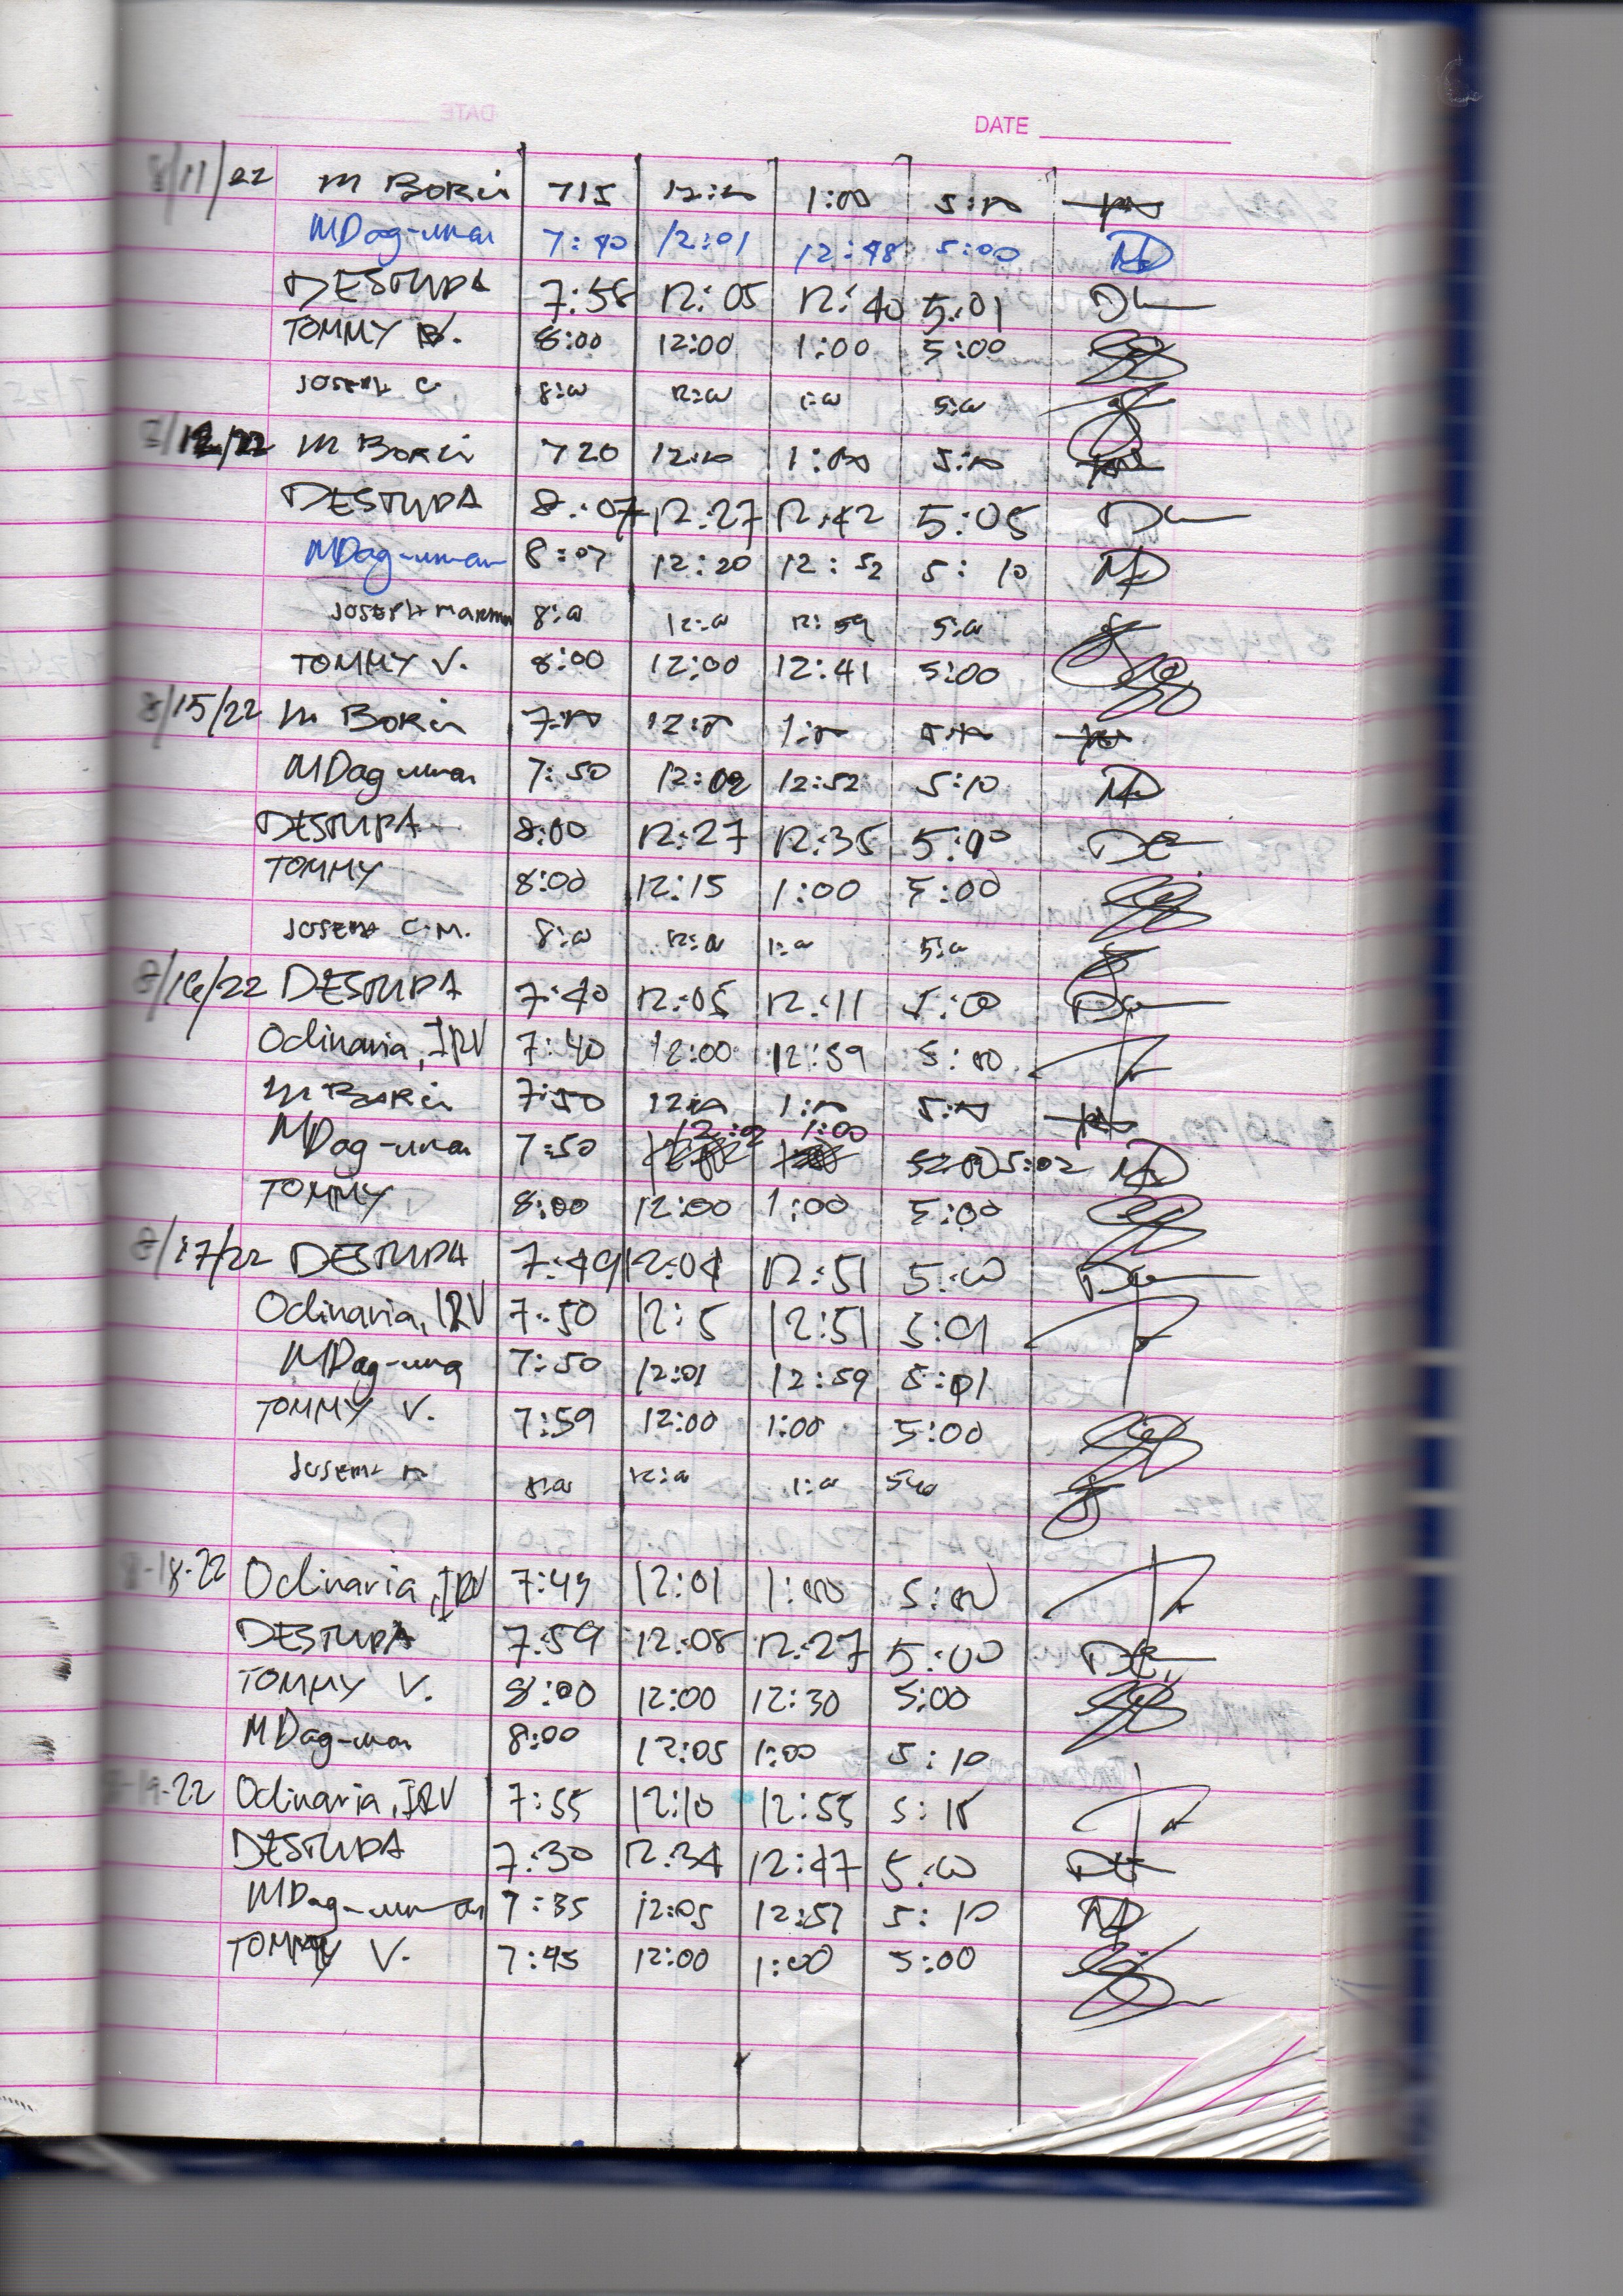 DATE
8/11/22 M Boris 715 12:00 1:00 5:00
MDag-uman 7:40 12:01 12:48 5:00 MD
DESTUPA 7:58 12:05 12:40 5:01
TOMMY V. 8:00 12:00 1:00 5:00
JOSEPH C. 8:00 12:00 1:00 5:00
8/12/22 M Boris 720 12:00 1:00 5:00
DESTUPA 8:07 12:27 12:42 5:05
MDag-uman 8:07 12:20 12:52 5:10 MD
JOSEPH 8:00 12:00 12:59 5:00
TOMMY V. 8:00 12:00 12:41 5:00
8/15/22 M Boris 7:00 12:00 1:00 5:00
MDag-uman 7:50 12:02 12:52 5:10 MD
DESTUPA 8:00 12:27 12:35 5:00 DE
TOMMY 8:00 12:15 1:00 5:00
JOSEPH C.M. 8:00 12:00 1:00 5:00
8/16/22 DESTUPA 7:40 12:05 12:11 5:00
Odinaria, IRV 7:40 12:00 12:59 5:00
M Boris 7:50 12:00 1:00 5:00
MDag-uman 7:50 12:02 1:00 5:02 MD
TOMMY 8:00 12:00 1:00 5:00
8/17/22 DESTUPA 7:49 12:04 12:51 5:00
Odinaria, IRV 7:50 12:5 12:51 5:01
MDag-uma 7:50 12:01 12:59 5:01
TOMMY V. 7:59 12:00 1:00 5:00
JOSEPH 8:00 12:00 1:00 5:00
8-18-22 Odinaria, IRV 7:49 12:01 1:00 5:00
DESTUPA 7:59 12:08 12:27 5:00 DE
TOMMY V. 8:00 12:00 12:30 5:00
MDag-uman 8:00 12:05 1:00 5:10
8-19-22 Odinaria, IRV 7:55 12:10 12:55 5:15
DESTUPA 7:30 12:34 12:47 5:00 DE
MDag-uman 7:35 12:05 12:57 5:10 MD
TOMMY V. 7:45 12:00 1:00 5:00